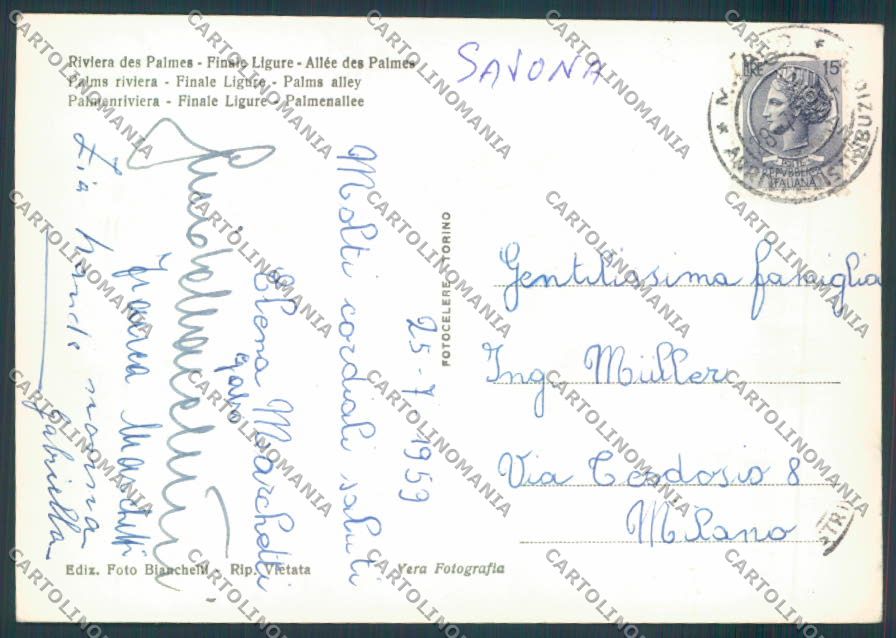 Riviera des Palmes - Finale Ligure - Allée des Palmes
Palms riviera - Finale Ligure - Palms alley
Palmenriviera - Finale Ligure - Palmenallee
SAVONA
LIRE 15
POSTE
REPVBBLICA
ITALIANA
Molti cordiali saluti
25-7-1959
Elena Marchetti
Marchetti
Gabriella
FOTOCELERE - TORINO
Gentilissima famiglia
Ing. Müller
Via Teodosio 8
Milano
Ediz. Foto Bianchelli - Rip. Vietata
Vera Fotografia
CARTOLINOMANIA